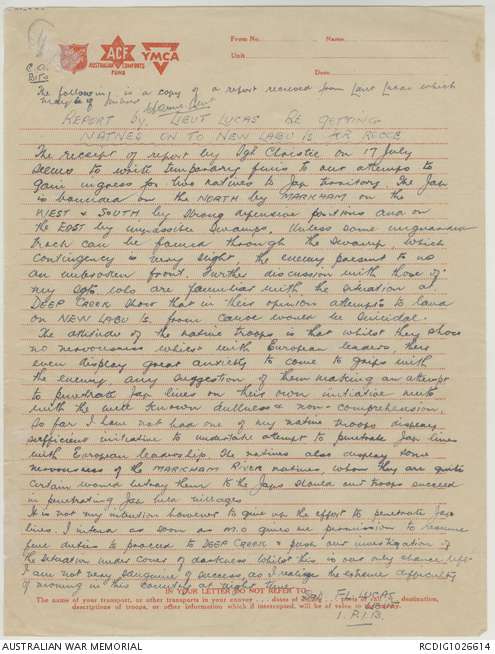 From No. Name
Unit
Date
ACF
AUSTRALIAN COMFORTS FUND
YMCA
C.O.
The following is a copy of a report received from Lieut Lucas which
may be of interest
REPORT by LIEUT LUCAS RE GETTING
NATIVES ON TO NEW LABU IS
The receipt of report by Sgt Christie on 17 July
seems to write temporary finis to our attempts to
gain ingress for two natives to Jap territory. The Jap
is bounded on the NORTH by MARKHAM on the
WEST & SOUTH by strong defensive positions and on
the EAST by impassible swamps. Unless some unguarded
track can be found through the swamp, which
contingency is very slight, the enemy present to us
an unbroken front. Further discussion with those of
my Sgts who are familiar with the situation at
DEEP CREEK show that in their opinion attempts to land
on NEW LABU IS. from canoe would be suicidal.
The attitude of the native troops is that whilst they show
no nervousness whilst with European leaders, they
even display great anxiety to come to grips with
the enemy, any suggestion of them making an attempt
to penetrate Jap lines on their own initiative meets
with the well known dullness & non-comprehension.
So far I have not had one of my native troops display
sufficient initiative to undertake attempt to penetrate Jap lines
with European leadership. The natives also display some
nervousness of the MARKHAM RIVER natives, whom they are quite
certain would betray them to the Japs should our troops succeed
in penetrating Jap held villages.
It is not my intention however to give up the effort to penetrate Jap
lines. I intend as soon as M.O gives me permission to resume
full duties to proceed to DEEP CREEK & push our investigation of
the situation under cover of darkness. Whilst this is our only chance left
I am not very sanguine of success, as I realize the extreme difficulty
of moving in this country at night time.
F.L. LUCAS
LIEUT
1. P.I.B.
IN YOUR LETTER DO NOT REFER TO:
The name of your transport, or other transports in your convoy . . . dates of ports of call destination,
descriptions of troops, or other information which if intercepted, will be of value to
AUSTRALIAN WAR MEMORIAL
RCDIG1026614